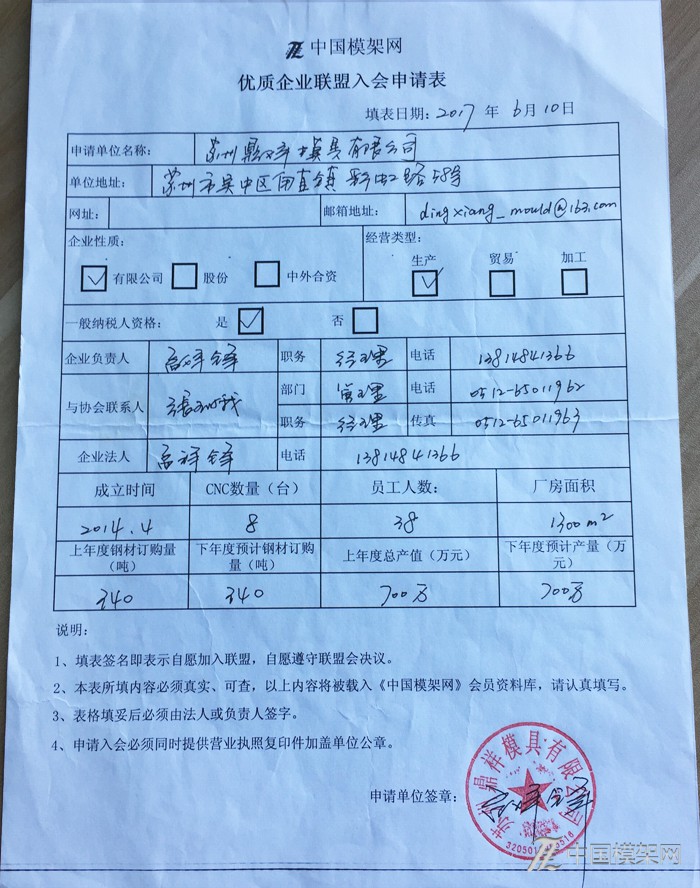 中国模架网
优质企业联盟入会申请表
填表日期：2017 年 6月10日
申请单位名称： 苏州鼎祥模具有限公司
单位地址： 苏州市吴中区甪直镇 路58号
网址： 邮箱地址： dingxiang_mould@163.com
企业性质： 经营类型：
有限公司 股份 中外合资 生产 贸易 加工
一般纳税人资格： 是 否
企业负责人 高祥锋 职务 经理 电话 13814841366
与协会联系人 部门 管理 电话 0512-65011962
职务 经理 传真 0512-65011963
企业法人 高祥锋 电话 13814841366
成立时间 CNC数量（台） 员工人数： 厂房面积
2014.4 8 38 1300m²
上年度钢材订购量（吨） 下年度预计钢材订购量（吨） 上年度总产值（万元） 下年度预计产量（万元）
340 340 700万 700万
说明：
1、填表签名即表示自愿加入联盟，自愿遵守联盟会决议。
2、本表所填内容必须真实、可查，以上内容将被载入《中国模架网》会员资料库，请认真填写。
3、表格填妥后必须由法人或负责人签字。
4、申请入会必须同时提供营业执照复印件加盖单位公章。
申请单位签章： 高祥锋
苏州鼎祥模具有限公司
中国模架网